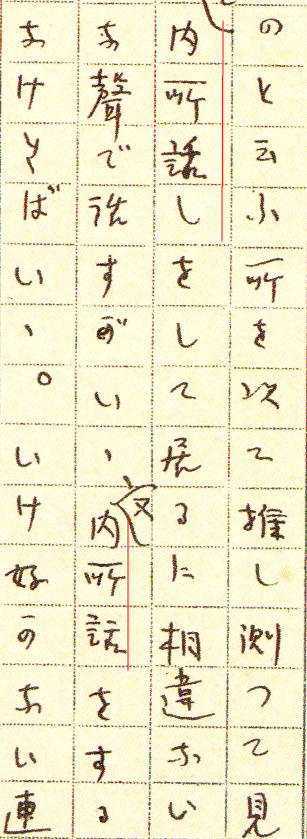 のと云ふ所を以て推し測つて見
内所話しをして居るに相違ない
な聲で話すがいゝ又内所話をする
なければいゝ。いけ好かない連